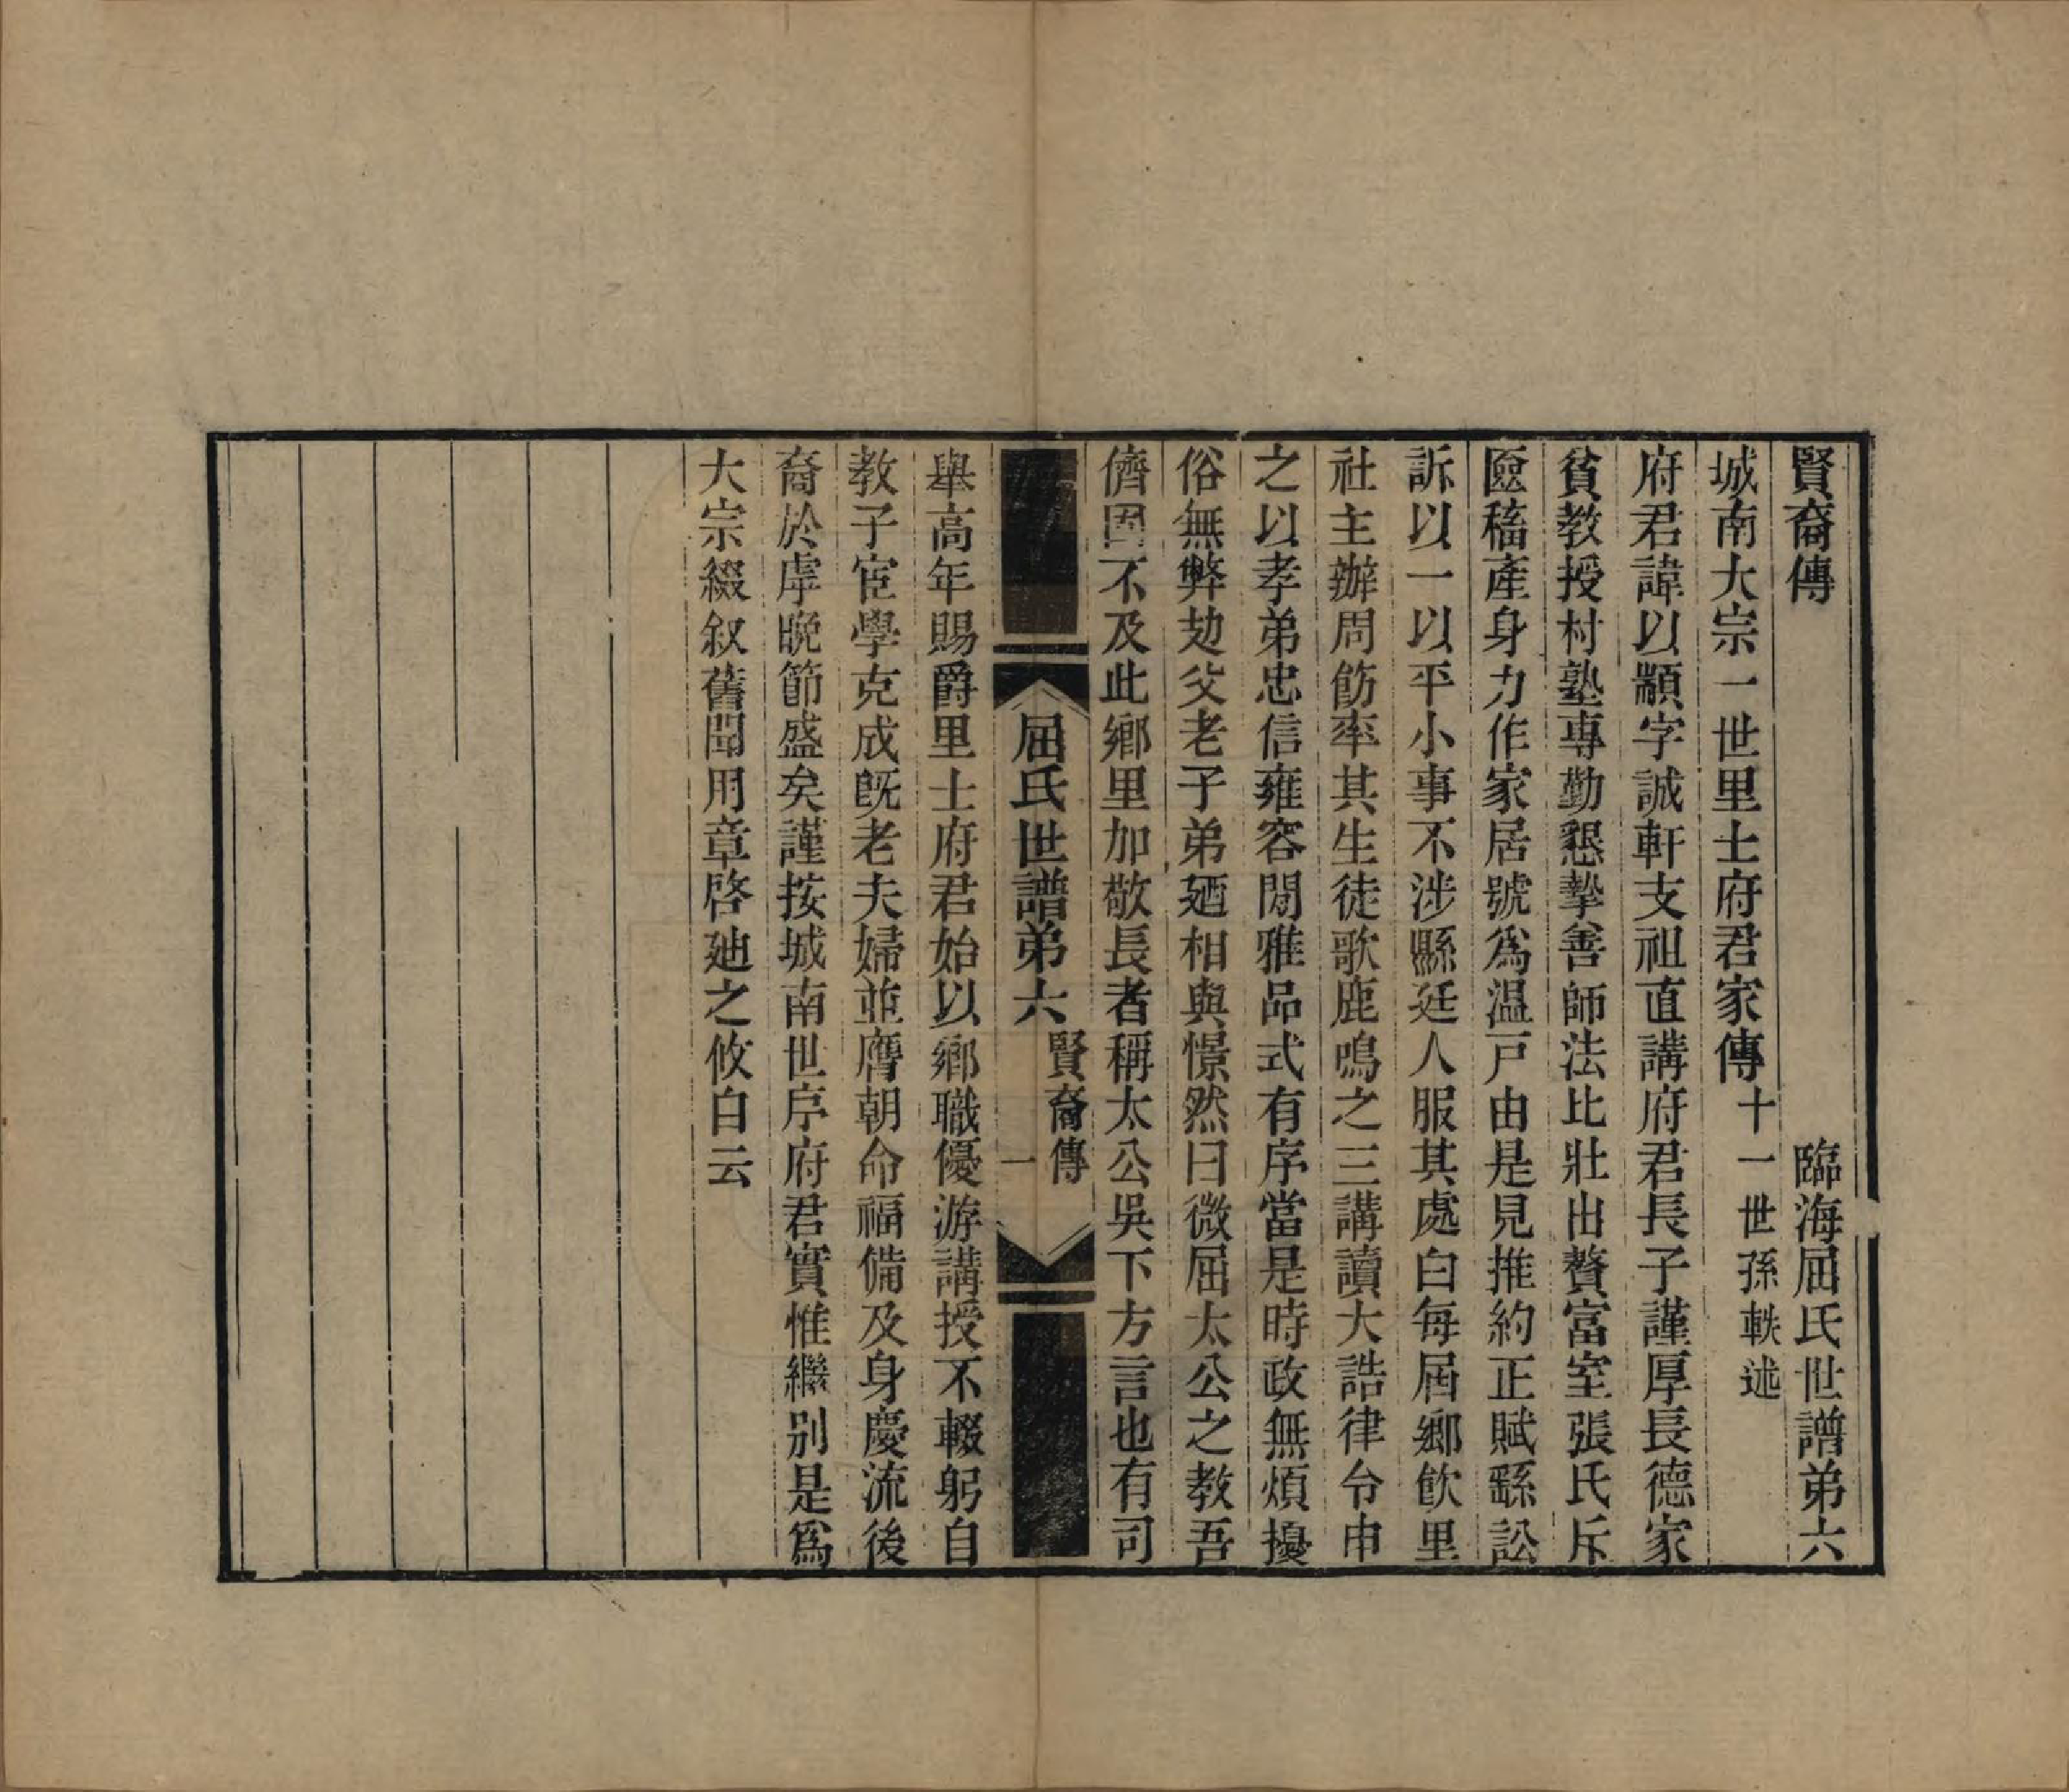 賢裔傳　臨海屈氏世譜弟六
城南大宗一世里士府君家傳　十一世孫軼述
府君諱以顓字誠軒支祖直講府君長子謹厚長德家
貧教授村塾專勤懇摯善師法比壯出贅富室張氏斥
匳稸產身力作家居號為温戸由是見推約正賦繇訟
訴以一以平小事不涉縣廷人服其處白每屆鄉飲里
社主辦周飭率其生徒歌鹿鳴之三講讀大誥律令申
之以孝弟忠信雍容閒雅品式有序當是時政無煩擾
俗無弊攰父老子弟廼相與憬然曰微屈太公之教吾
儕固不及此鄉里加敬長者稱太公吳下方言也有司
屈氏世譜弟六　賢裔傳　一
舉高年賜爵里士府君始以鄉職優游講授不輟躬自
教子宦學克成旣老夫婦並膺朝命福備及身慶流後
裔於虖晚節盛矣謹按城南世序府君實惟繼別是爲
大宗綴叙舊聞用章啓廸之攸自云